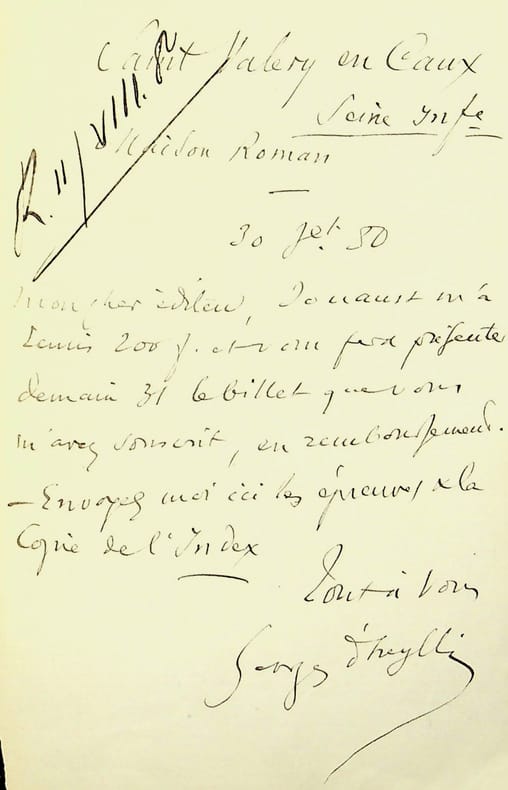 Saint Valery en Caux
Seine Infe
Maison Roman
R. 11/VIII.80
30 Jet. 80
Mon cher éditeur, Jouaust m'a
remis 200 f. et vous fera présenter
demain 31 le billet que vous
m'avez souscrit, en remboursement.
— Envoyez moi ici les épreuves & la
Copie de l'Index
Tout à vous
Georges d'Heylli